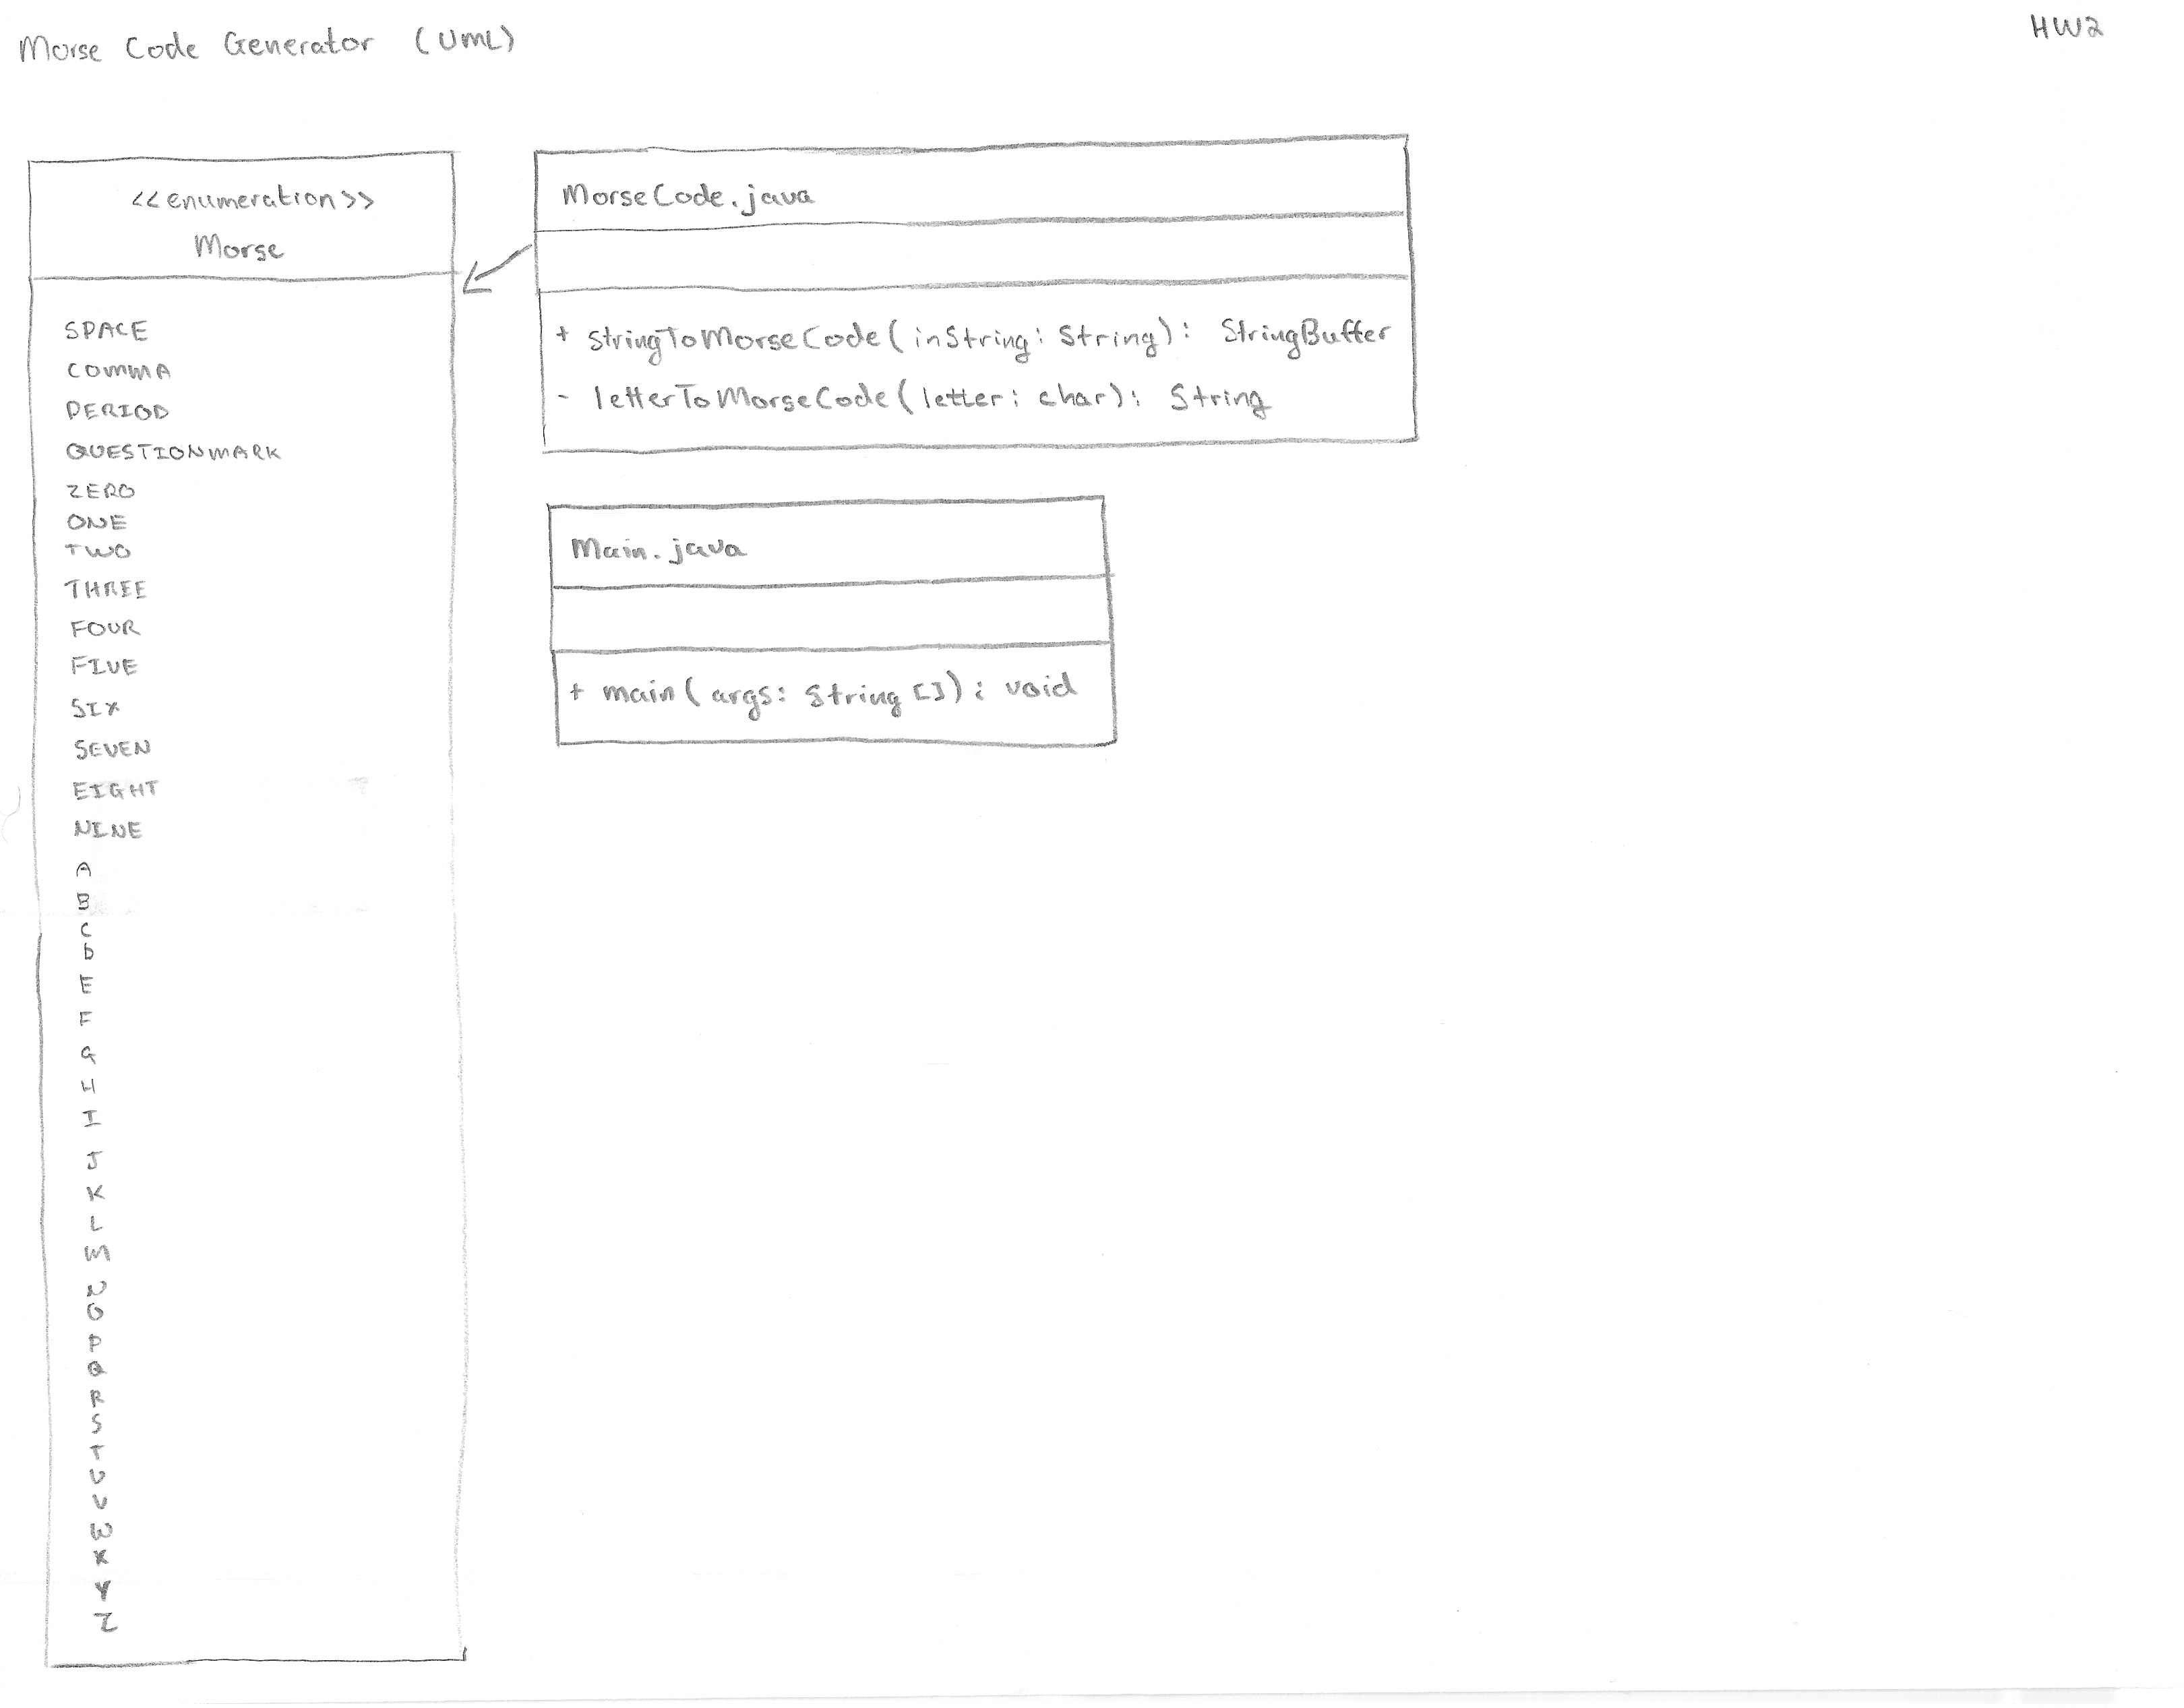 Morse Code Generator (UML)
HW2
<<enumeration>>
Morse
SPACE
COMMA
PERIOD
QUESTIONMARK
ZERO
ONE
TWO
THREE
FOUR
FIVE
SIX
SEVEN
EIGHT
NINE
A
B
C
D
E
F
G
H
I
J
K
L
M
N
O
P
Q
R
S
T
U
V
W
X
Y
Z
MorseCode.java
+ stringToMorseCode(inString: String): StringBuffer
- letterToMorseCode(letter: char): String
Main.java
+ main(args: String[]): void